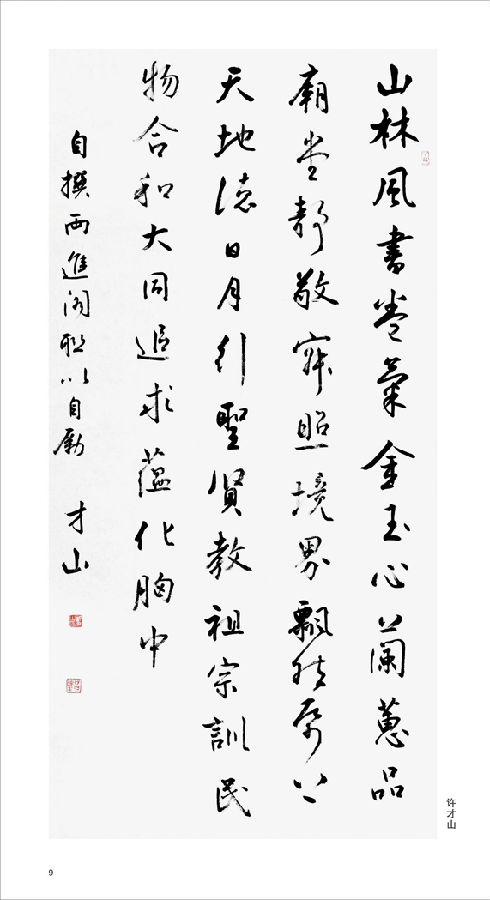 山林風書卷氣金玉心蘭蕙品
廟堂靜敬寂照境界飄上
天地德日月行聖賢教祖宗訓民
物合和大同追求蘊化胸中
自撰兩進閣聯以自勵 才山
许才山
9